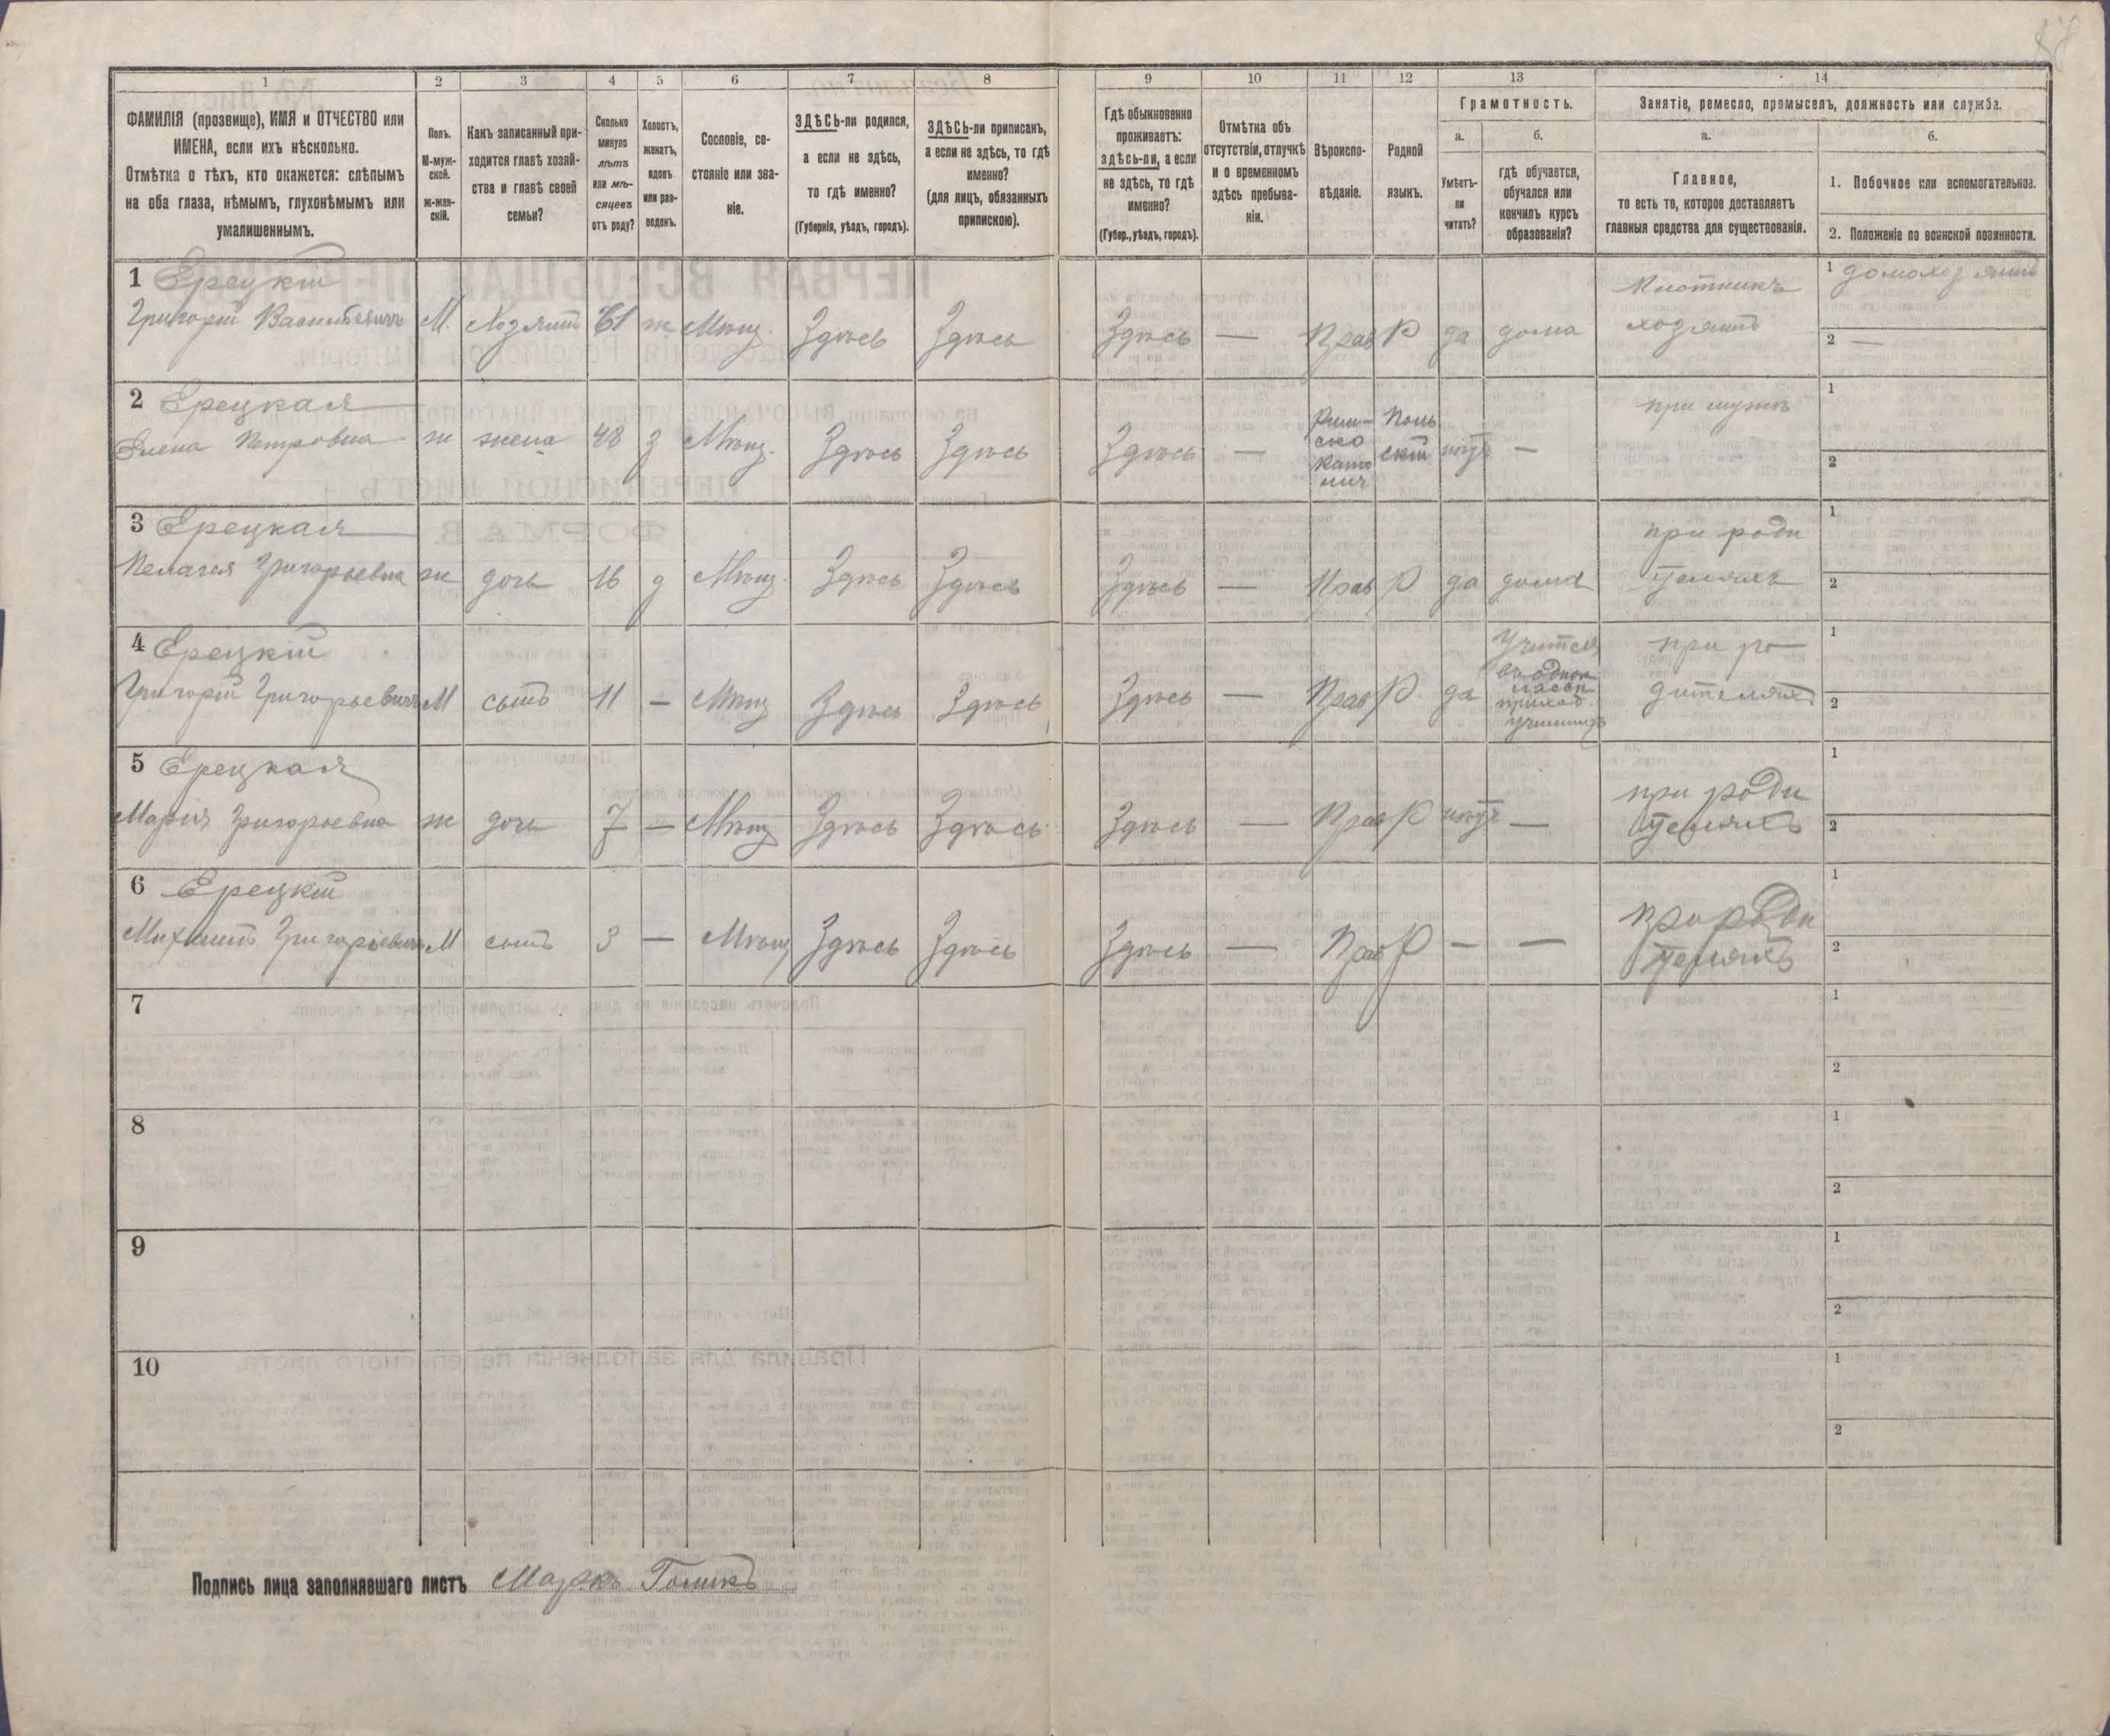 1 2 3 4 5 6 7 8 9 10 11 12 13 14
ФАМИЛІЯ (прозвище), ИМЯ и ОТЧЕСТВО или
ИМЕНА, если ихъ нѣсколько.
Отмѣтка о тѣхъ, кто окажется: слѣпымъ
на оба глаза, нѣмымъ, глухонѣмымъ или
умалишеннымъ.
Полъ.
М-муж-
ской.
ж-жен-
скій.
Какъ записанный при-
ходится главѣ хозяй-
ства и главѣ своей
семьи?
Сколько
минуло
лѣтъ
или мѣ-
сяцевъ
отъ роду?
Холостъ,
женатъ,
вдовъ
или раз-
веденъ.
Сословіе, со-
стояніе или зва-
ніе.
ЗДѢСЬ-ли родился,
а если не здѣсь,
то гдѣ именно?
(Губернія, уѣздъ, городъ).
ЗДѢСЬ-ли приписанъ,
а если не здѣсь, то гдѣ
именно?
(для лицъ, обязанныхъ
припискою).
Гдѣ обыкновенно
проживаетъ:
здѣсь-ли, а если
не здѣсь, то гдѣ
именно?
(Губер., уѣздъ, городъ).
Отмѣтка объ
отсутствіи, отлучкѣ
и о временномъ
здѣсь пребыва-
ніи.
Вѣроиспо-
вѣданіе.
Родной
языкъ.
Грамотность.
а.
Умѣетъ-
ли
читать?
б.
гдѣ обучается,
обучался или
кончилъ курсъ
образованія?
Занятіе, ремесло, промыселъ, должность или служба.
а.
Главное,
то есть то, которое доставляетъ
главныя средства для существованія.
б.
1. Побочное или вспомогательное.
2. Положеніе по воинской повинности.
1 Ерецкій
Григорій Васильевичъ М. Хозяинъ 61 ж Мѣщ. Здѣсь Здѣсь Здѣсь — Прав Р да дома
Плотникъ
хозяинъ
1 домохозяинъ
2 —
2 Ерецкая
Елена Петровна ж жена 48 з Мѣщ. Здѣсь Здѣсь Здѣсь —
Рим-
ско
като
лич
Поль
скій
нѣтъ —
при мужѣ
1
2
3 Ерецкая
Пелагея Григорьевна ж дочь 16 д Мѣщ. Здѣсь Здѣсь Здѣсь — Прав Р да дома
при роди
теляхъ
1
2
4 Ерецкій
Григорій Григорьевичъ М сынъ 11 — Мѣщ Здѣсь Здѣсь Здѣсь — Прав Р. да
Учится
въ однок
ласн
приход.
училищѣ
при ро-
дителяхъ
1
2
5 Ерецкая
Марія Григорьевна ж дочь 7 — Мѣщ Здѣсь Здѣсь Здѣсь — Прав Р нѣтъ —
при роди
теляхъ
1
2
6 Ерецкій
Михаилъ Григорьевичъ М сынъ 3 — Мѣщ Здѣсь Здѣсь Здѣсь — Прав Р — —
при роди
теляхъ
1
2
7
1
2
8
1
2
9
1
2
10
1
2
Подпись лица заполнявшаго листъ Маркъ Голикъ